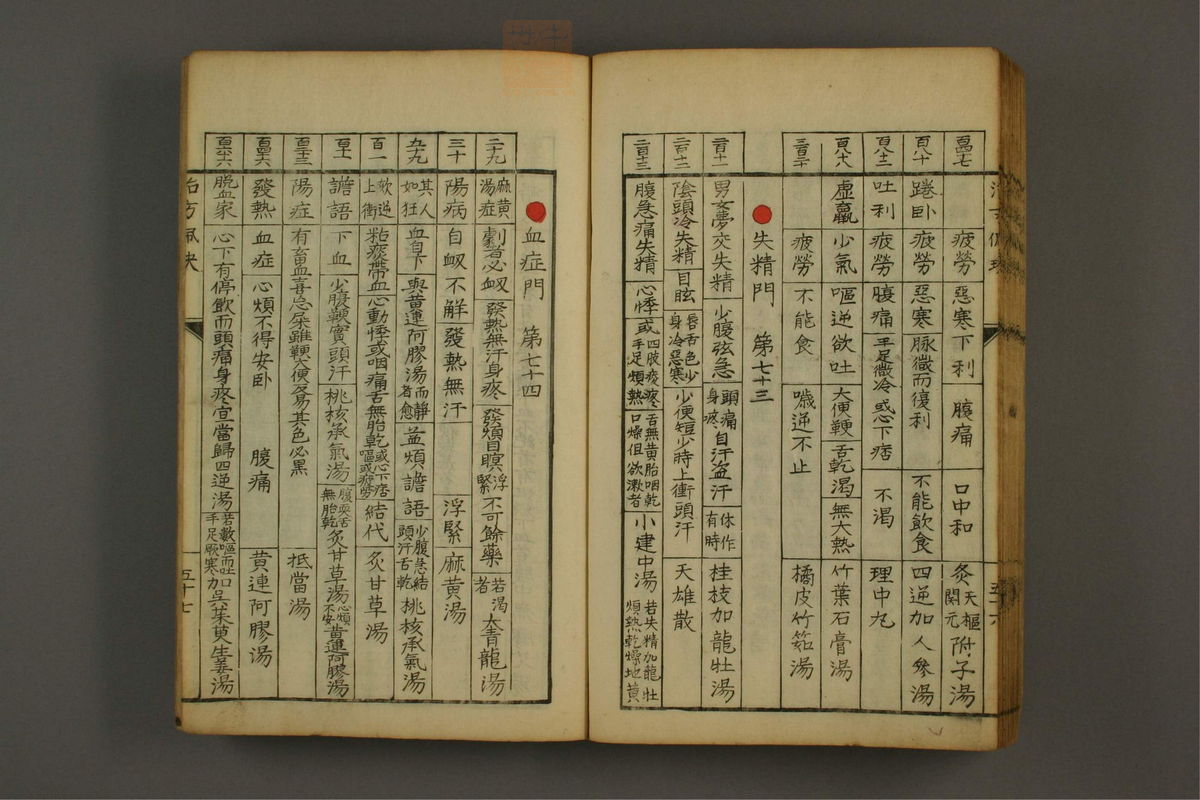 百四七 疲勞 惡寒下利 腹痛 口中和 灸天樞關元 附子湯
百八十 踡臥 疲勞 惡寒 脉微而復利 不能飲食 四逆加人參湯
百八二 吐利 疲勞 腹痛 手足微冷 或心下痞 不渴 理中丸
百八八 虛羸 少氣 嘔逆欲吐 大便鞕 舌乾渴 無大熱 竹葉石膏湯
疲勞 不能食 噦逆不止 橘皮竹茹湯
失精門 第七十三
男女夢交失精 少腹弦急 頭痛身疼 自汗盜汗 休作有時 桂枝加龍牡湯
陰頭冷失精 目眩 唇舌色少身冷惡寒 少便短少時上衝頭汗 天雄散
腹急痛失精 心悸 或四肢痠疼手足煩熱 舌無黃胎咽乾口燥但欲漱者 小建中湯 若失精加龍牡煩熱乾燥地黃
血症門 第七十四
二十九 麻黃湯症 劇者必衂 發熱無汗身疼 發煩目瞑 浮緊 不可餘藥 若渴者 大青龍湯
三十 陽病 自衂 不解 發熱無汗 浮緊 麻黃湯
九十九 其人如狂 血自下 與黃連阿膠湯而靜者愈 益煩譫語 少腹急結頭汗舌乾 桃核承氣湯
百一 欬逆上衝 粘痰帶血 心動悸或咽痛舌無胎乾 或心下痞嘔或疲勞 結代 灸甘草湯
譫語 下血 少腹鞕實頭汗 桃核承氣湯 腹耎舌無胎乾 灸甘草湯 心煩不安 黃連阿膠湯
陽症 有畜血喜忘屎雖鞕大便反易其色必黑 抵當湯
百四六 發熱 血症 心煩不得安臥 腹痛 黃連阿膠湯
脫血家 心下有停飲而頭痛身疼宜當歸四逆湯 若數嘔而吐手足厥寒 加吳茱萸生姜湯
五十七